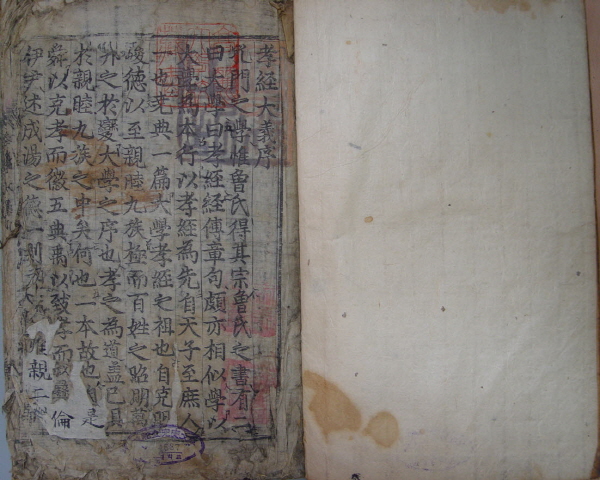 孝經大義序
孔門之學惟曾氏得其宗曾氏之書有二
曰大學曰孝經經傳章句頗亦相似學以
大學為本行以孝經為先自天子至庶人
一也堯典一篇大學孝經之祖也自克明
峻德以至親睦九族極而百姓之昭明萬
邦之於變大學之序也孝之為道蓋已具
於親睦九族之中矣何也一本故也是
舜以克孝而徽五典禹以致孝而倫
伊尹述成湯之德一則惟親二